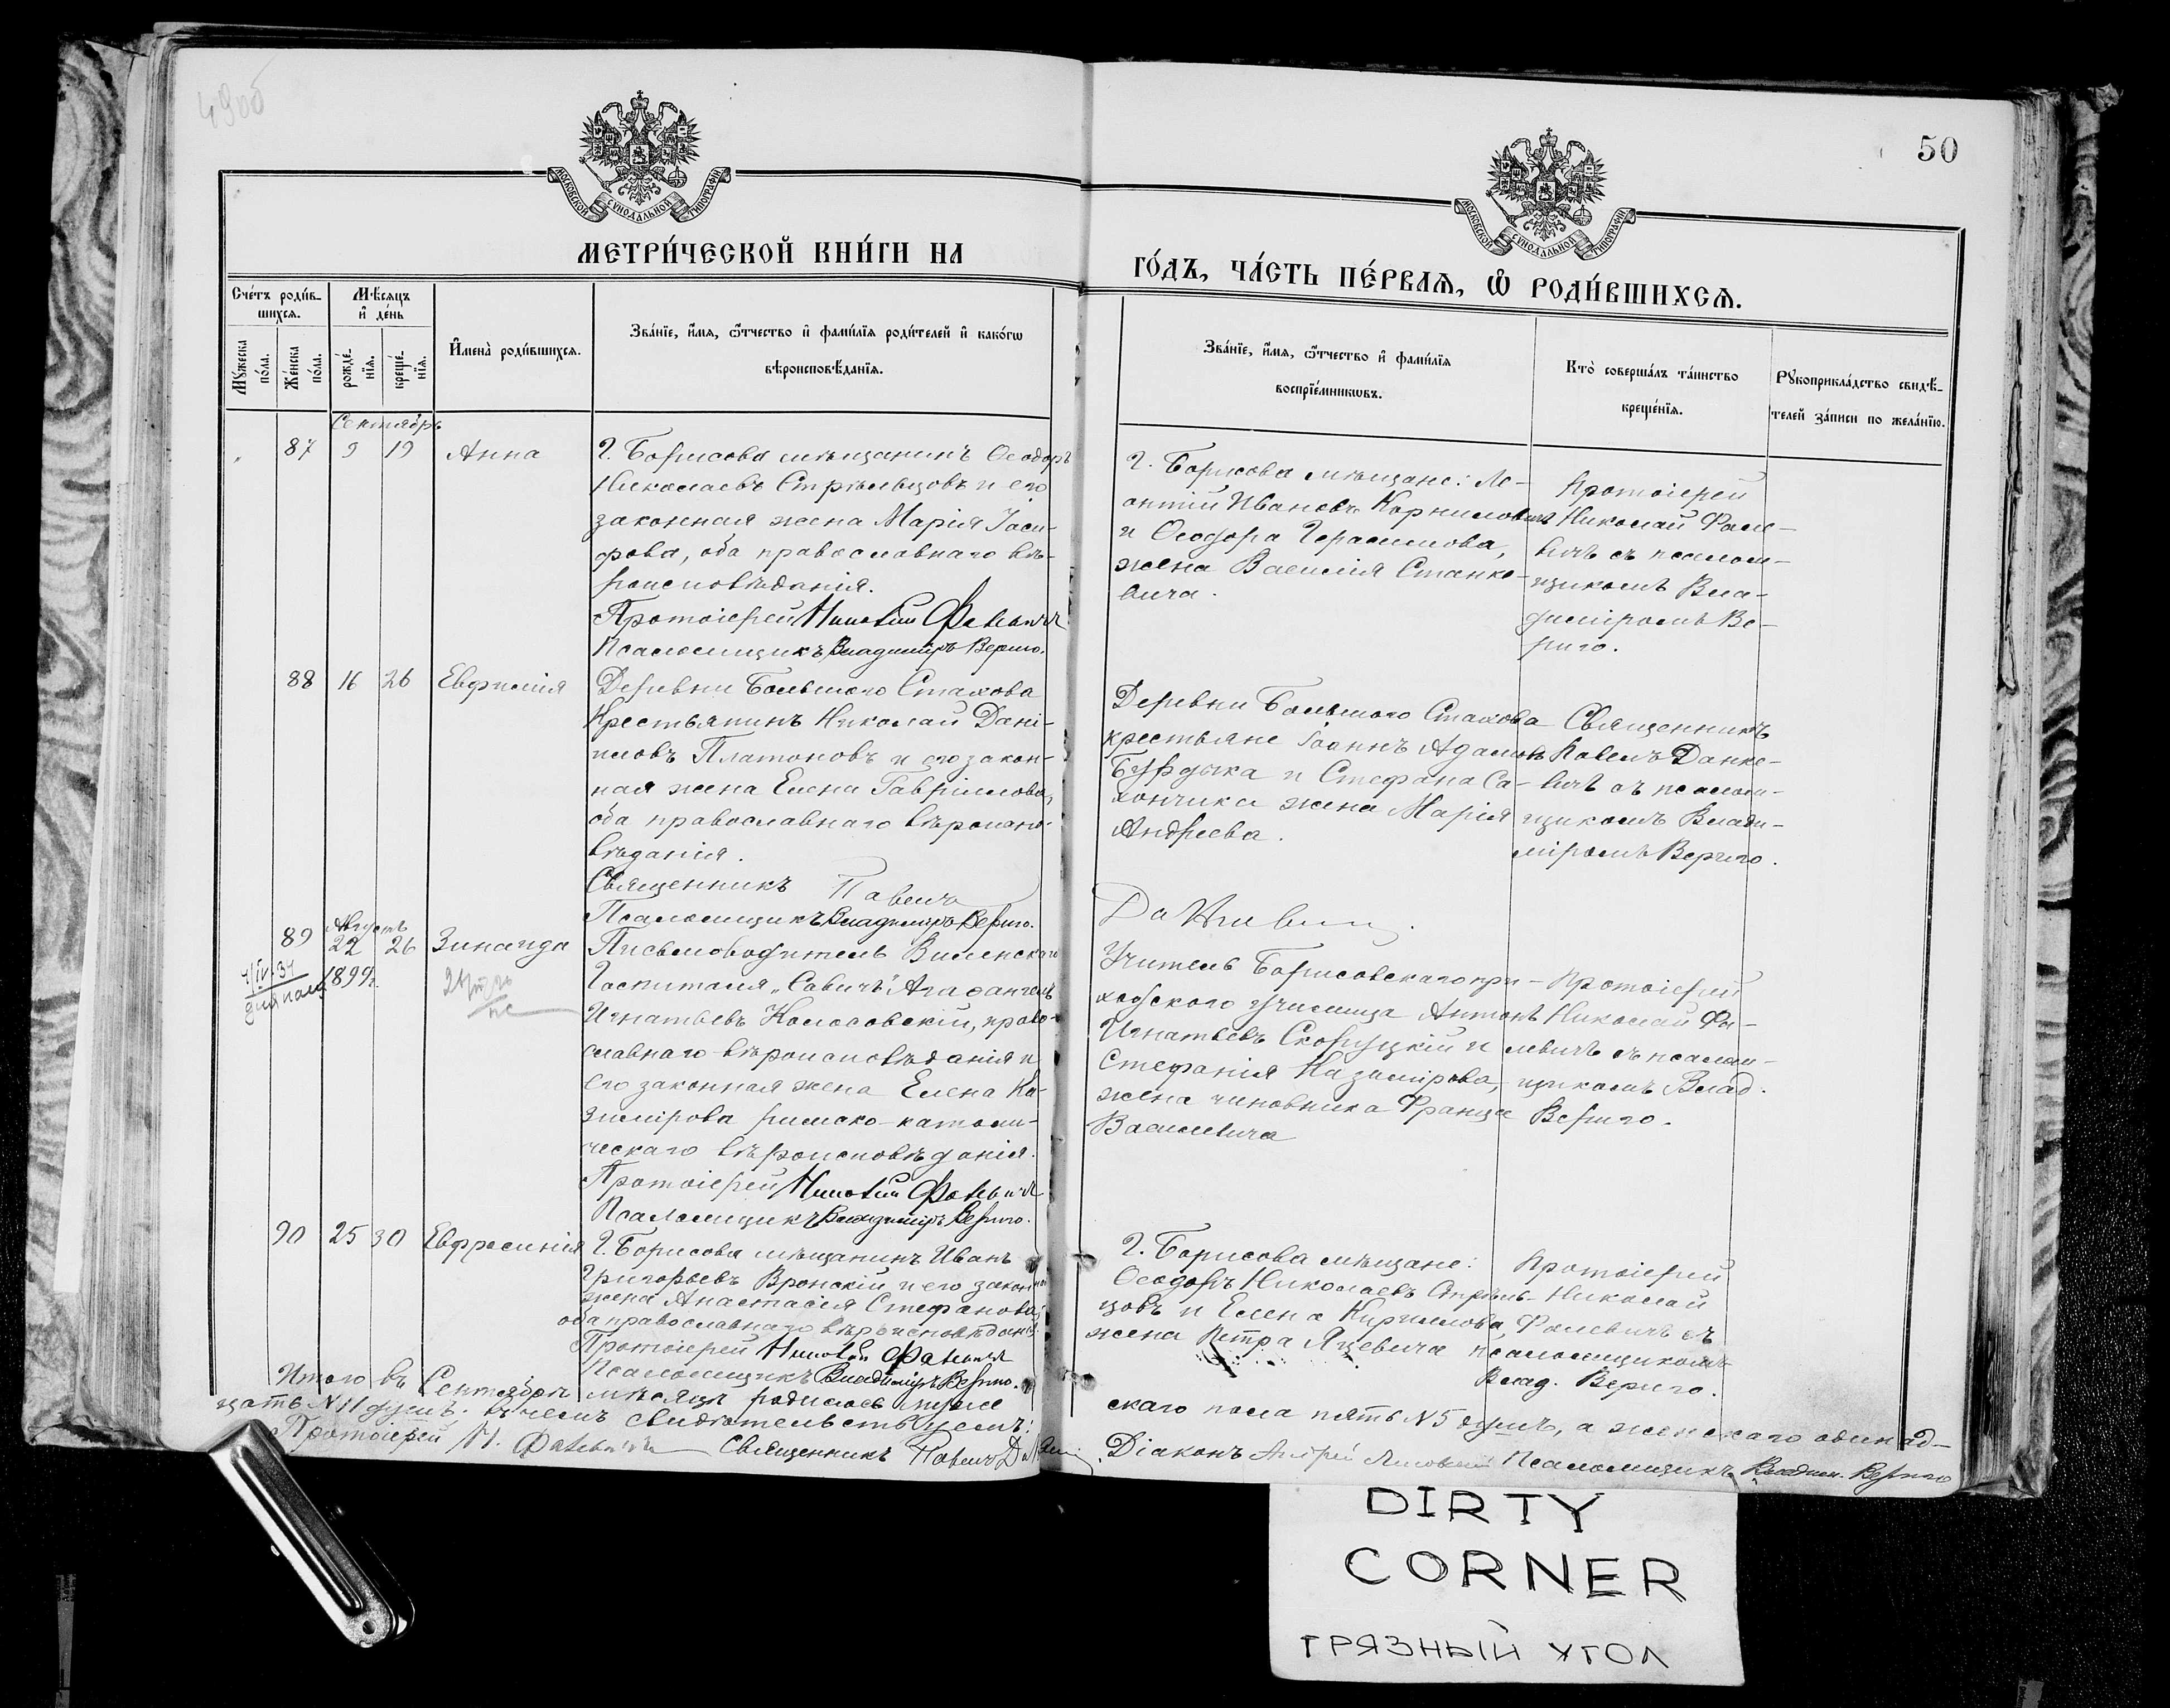 49об
50
МОСКОВСКОЙ СѴНОДАЛЬНОЙ ТИПОГРАФІИ
МОСКОВСКОЙ СѴНОДАЛЬНОЙ ТИПОГРАФІИ
МЕТРИ́ЧЕСКОЙ КНИ́ГИ НА
ГО́ДЪ, ЧА́СТЬ ПЕ́РВАѦ, Ѽ РОДИ́ВШИХСѦ.
Сче́тъ роди́в-
шихсѧ.
Мꙋ́жеска
по́ла.
Же́нска
по́ла.
Мѣ́сѧцъ
и҆ де́нь
рожде́-
нїѧ.
креще́-
нїѧ.
И҆мена̀ роди́вшихсѧ.
Зва́нїе, и҆́мѧ, ѻ҆́тчество и҆ фами́лїѧ роди́телей и҆ како́гѡ
вѣроисповѣ́данїѧ.
Зва́нїе, и҆́мѧ, ѻ҆́тчество и҆ фами́лїѧ
воспрїе́мникѡвъ.
Кто̀ соверша́лъ та́инство
креще́нїѧ.
Рꙋкоприкла́дство свидѣ́-
телей за́писи по жела́нїю.
Сентябрь
87 9 19 Анна
Г. Борисова мѣщанинъ Ѳеодоръ
Николаевъ Стрѣльцовъ и его
законная жена Марія Іоси-
фова, оба православнаго вѣ-
роисповѣданія.
Протоіерей Николай Фалевичъ
Псаломщикъ Владиміръ Вериго.
Г. Борисова мѣщане: Ле-
онтій Ивановъ Корниловичъ
и Ѳеодора Герасимова,
жена Василія Станке-
вича.
Протоіерей
Николай Фале-
вичъ съ псалом-
щикомъ Вла-
диміромъ Ве-
риго.
88 16 26 Евфимія
Деревни Большого Стахова
Крестьянинъ Николай Дані-
иловъ Платоновъ и его закон-
ная жена Елена Гавріилова,
оба православнаго вѣроиспо-
вѣданія.
Священникъ Павелъ
Псаломщикъ Владиміръ Вериго.
Деревни Большого Стахова
крестьяне Іоаннъ Адамовъ
Бурдыка и Стефана Са-
хончика жена Марія
Андреева.
Священникъ
Павелъ Данке-
вичъ съ псалом-
щикомъ Влади-
міромъ Вериго.
Данкевичъ.
Августъ
89 22 26 Зинаида
1899г.
4/IV-34
Письмоводитель Виленскаго
Госпиталя „Савичъ" Агафангелъ
Игнатьевъ Колосовскій, право-
славнаго вѣроисповѣданія и
его законная жена Елена Ка-
зимірова римско-католи-
ческаго вѣроисповѣданія.
Протоіерей Николай Фалевичъ
Псаломщикъ Владиміръ Вериго.
Учитель Борисовскаго при-
ходского училища Антонъ
Игнатьевъ Скоруцкій и
Стефанія Казимірова,
жена чиновника Франца
Василевича
Протоіерей
Николай Фа-
левичъ съ псалом-
щикомъ Влад.
Вериго.
90 25 30 Евфросинія
Г. Борисова мѣщанинъ Иванъ
Григорьевъ Вронскій и его законная
жена Анастасія Стефанова,
оба православнаго вѣроисповѣданія
Протоіерей Николай Фалевичъ
Псаломщикъ Владиміръ Вериго.
Г. Борисова мѣщане:
Ѳеодоръ Николаевъ Стрѣль-
цовъ и Елена Кириллова,
жена Петра Яцевича
Протоіерей
Николай
Фалевичъ съ
псаломщикомъ
Влад. Вериго.
Итого въ Сентябрѣ мѣсяцѣ родилось муже
скаго пола пять №5 душъ, а женскаго одинад-
цать №11 душъ. Въ чемъ свидѣтельствуемъ:
Протоіерей Н. Фалевичъ Священникъ Павелъ Данкевичъ. Діаконъ Андрей Псаломщикъ Владим. Вериго
DIRTY
CORNER
ГРЯЗНЫЙ УГОЛ